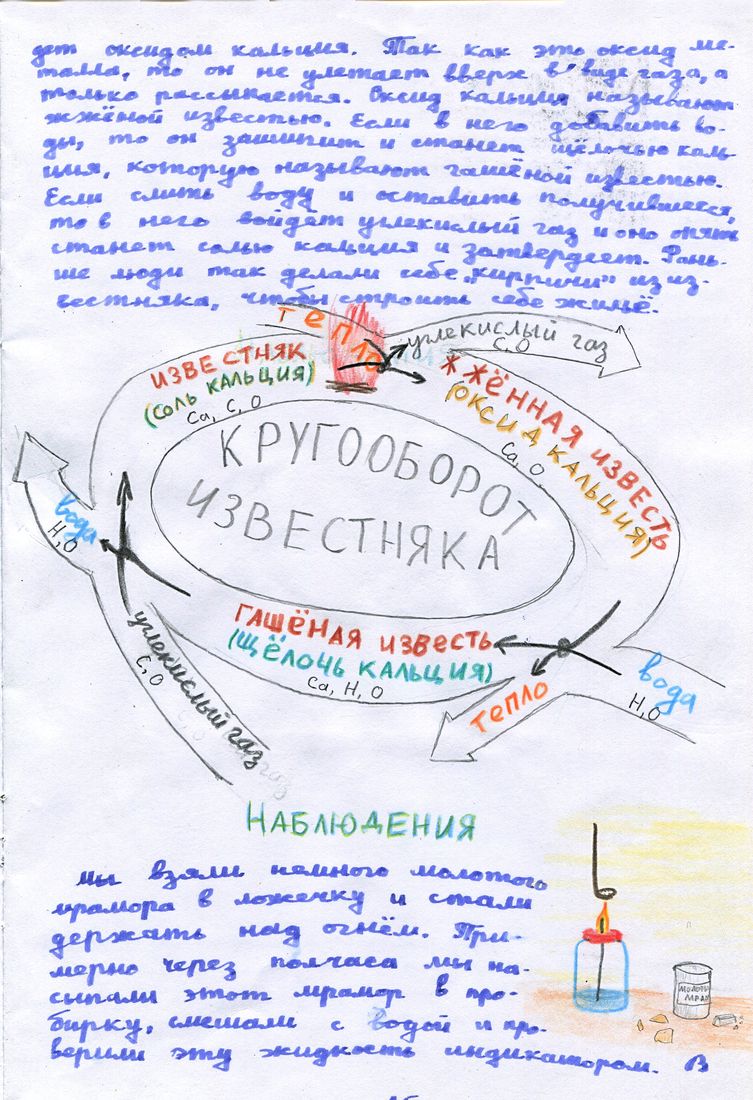 дет оксидом кальция. Так как это оксид ме-
талла, то он не улетает вверх в виде газа, а
только рассыпается. Оксид кальция называют
жжёной известью. Если в него добавить во-
ды, то он зашипит и станет щёлочью каль-
ция, которую называют гашёной известью.
Если слить воду и оставить получившееся,
то в него войдёт углекислый газ и оно опять
станет солью кальция и затвердеет. Рань-
ше люди так делали себе „кирпичи" из из-
вестняка, чтобы строить себе жильё.
тепло
углекислый газ
C, O
ИЗВЕСТНЯК
(СОЛЬ КАЛЬЦИЯ)
Ca, C, O
ЖЖЁННАЯ ИЗВЕСТЬ
(ОКСИД КАЛЬЦИЯ)
Ca, O
КРУГООБОРОТ
ИЗВЕСТНЯКА
вода
H, O
ГАШЁНАЯ ИЗВЕСТЬ
(ЩЁЛОЧЬ КАЛЬЦИЯ)
Ca, H, O
углекислый газ
C, O
тепло
вода
H, O
НАБЛЮДЕНИЯ
мы взяли немного молотого
мрамора в ложечку и стали
держать над огнём. При-
мерно через полчаса мы на-
сыпали этот мрамор в про-
бирку, смешали с водой и про-
верили эту жидкость индикатором. В
МОЛОТЫ
МРАМ